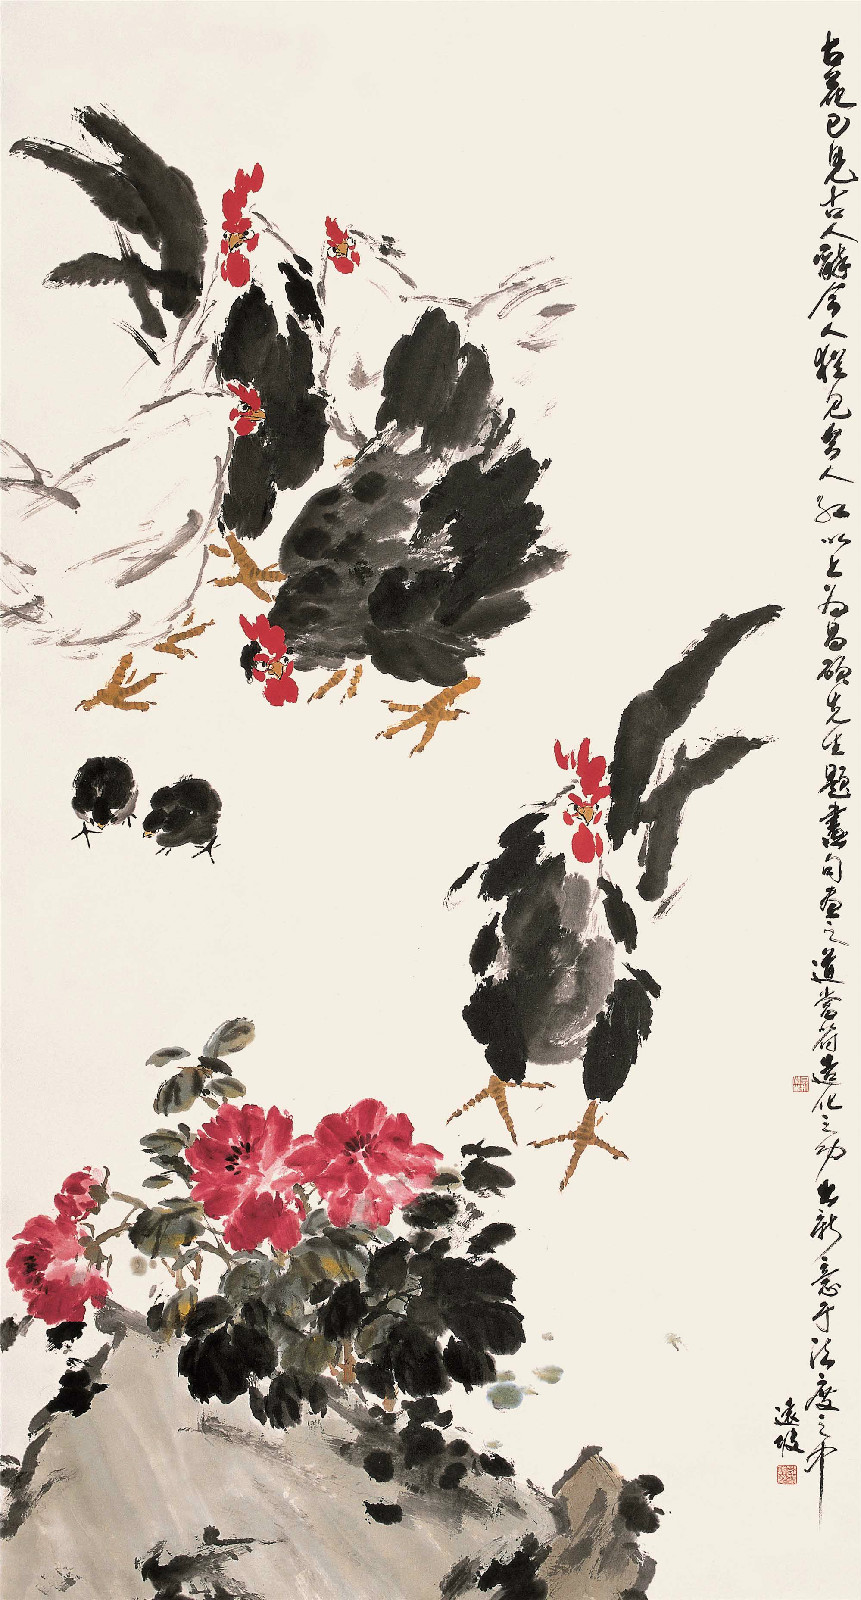 古花已見古人醉今人猶見人紅以上为昌碩先生題畫句画之道當符造化之功出新意于法度之中
遠坡